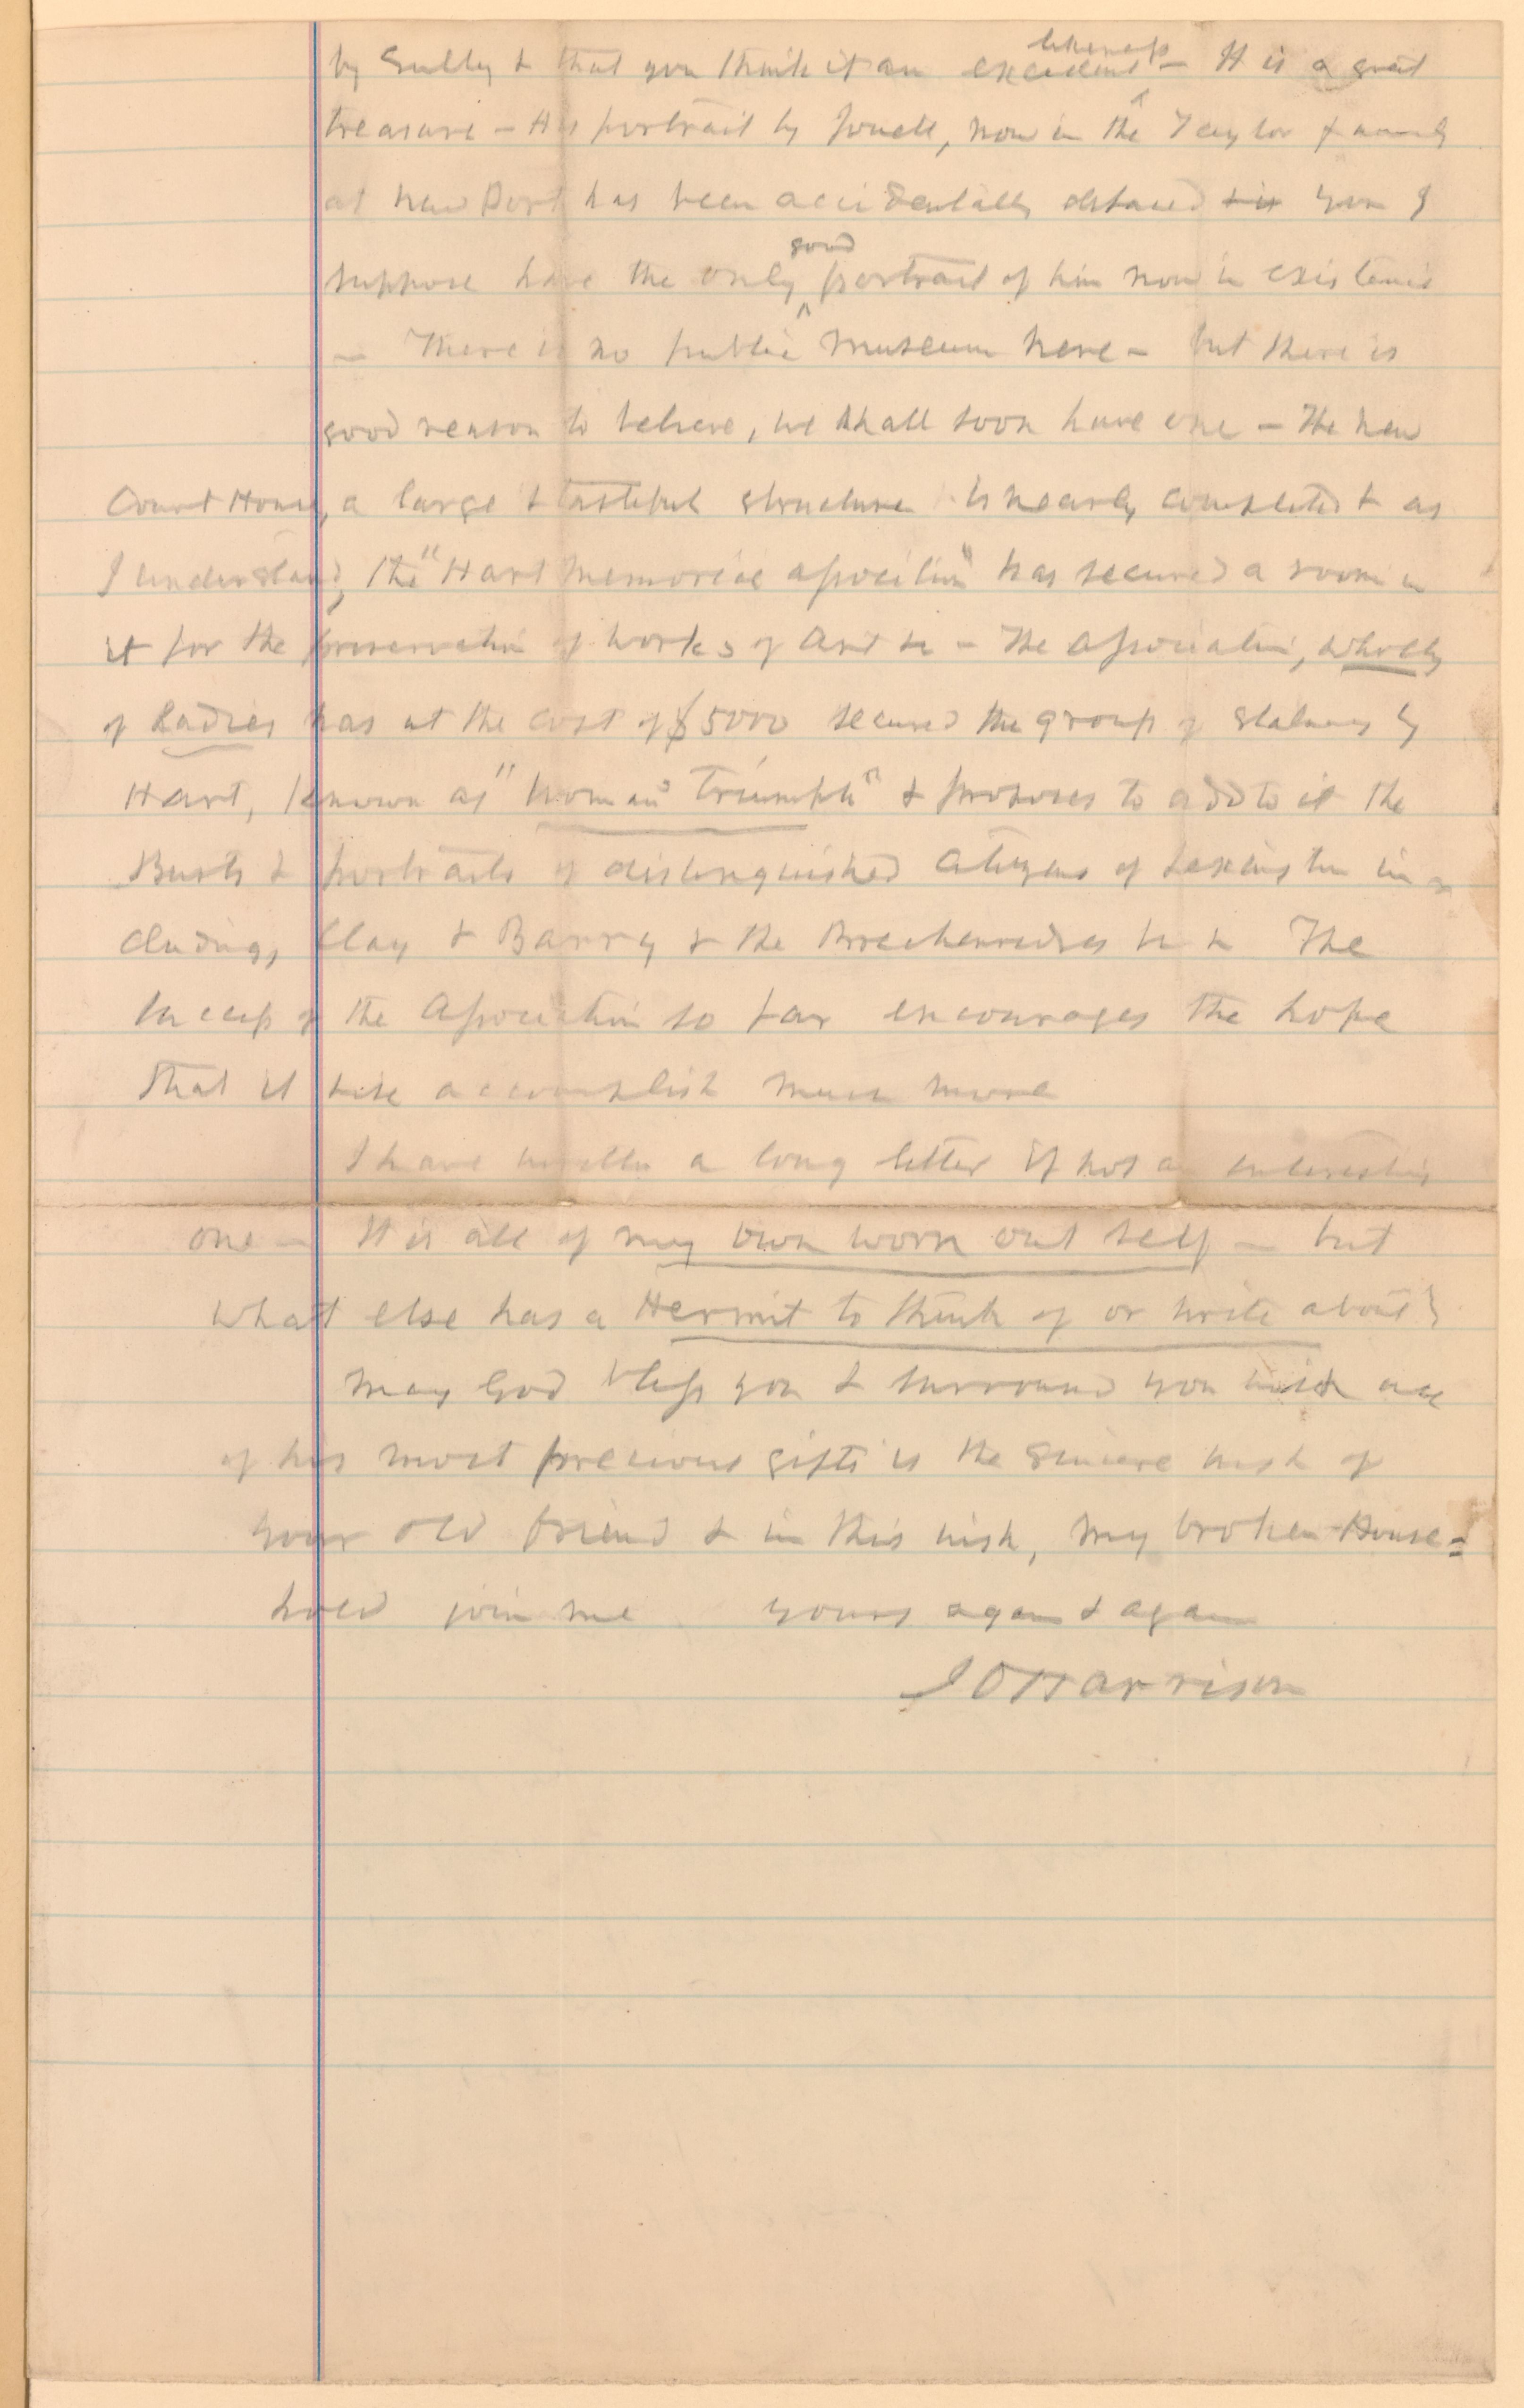 by Sully & that you think it an excellent likeness — It is a great
treasure — His portrait by Jouett, now in the Taylor family
at New Port has been accidentally defaced & is you I
suppose have the only good portrait of him now in existence
— There is no public museum here — but there is
good reason to believe, we shall soon have one — The new
Court House, a large & tasteful structure is nearly completed & as
I understand, the "Hart Memorial association" has secured a room in
it for the preservation of works of Art &c — The Association, wholly
of Ladies has at the cost of $5000 secured the group of Statuary by
Hart, known as "Woman's Triumph" & proposes to add to it the
Busts & portraits of distinguished Citizens of Lexington in=
cluding, Clay & Barry & the Breckenridges &c &c The
success of the Association so far encourages the hope
that it will accomplish much more
I have written a long letter if not an interesting
one — It is all of my own worn out self — but
what else has a Hermit to think of or write about?
May God bless you & surround you with all
of his most precious gifts is the sincere wish of
your old friend & in this wish, my broken House=
hold join me yours again & again
J O Harrison